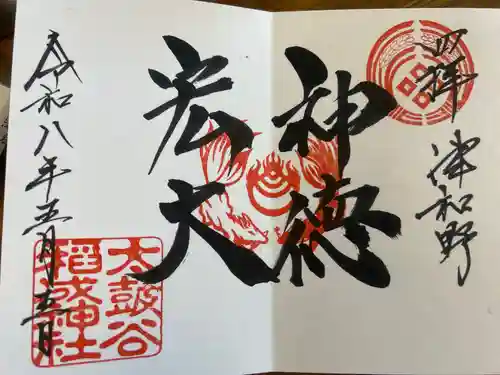 拝
津和野
神徳
宏大
太鼓谷
稲成神社
令和八年五月五日